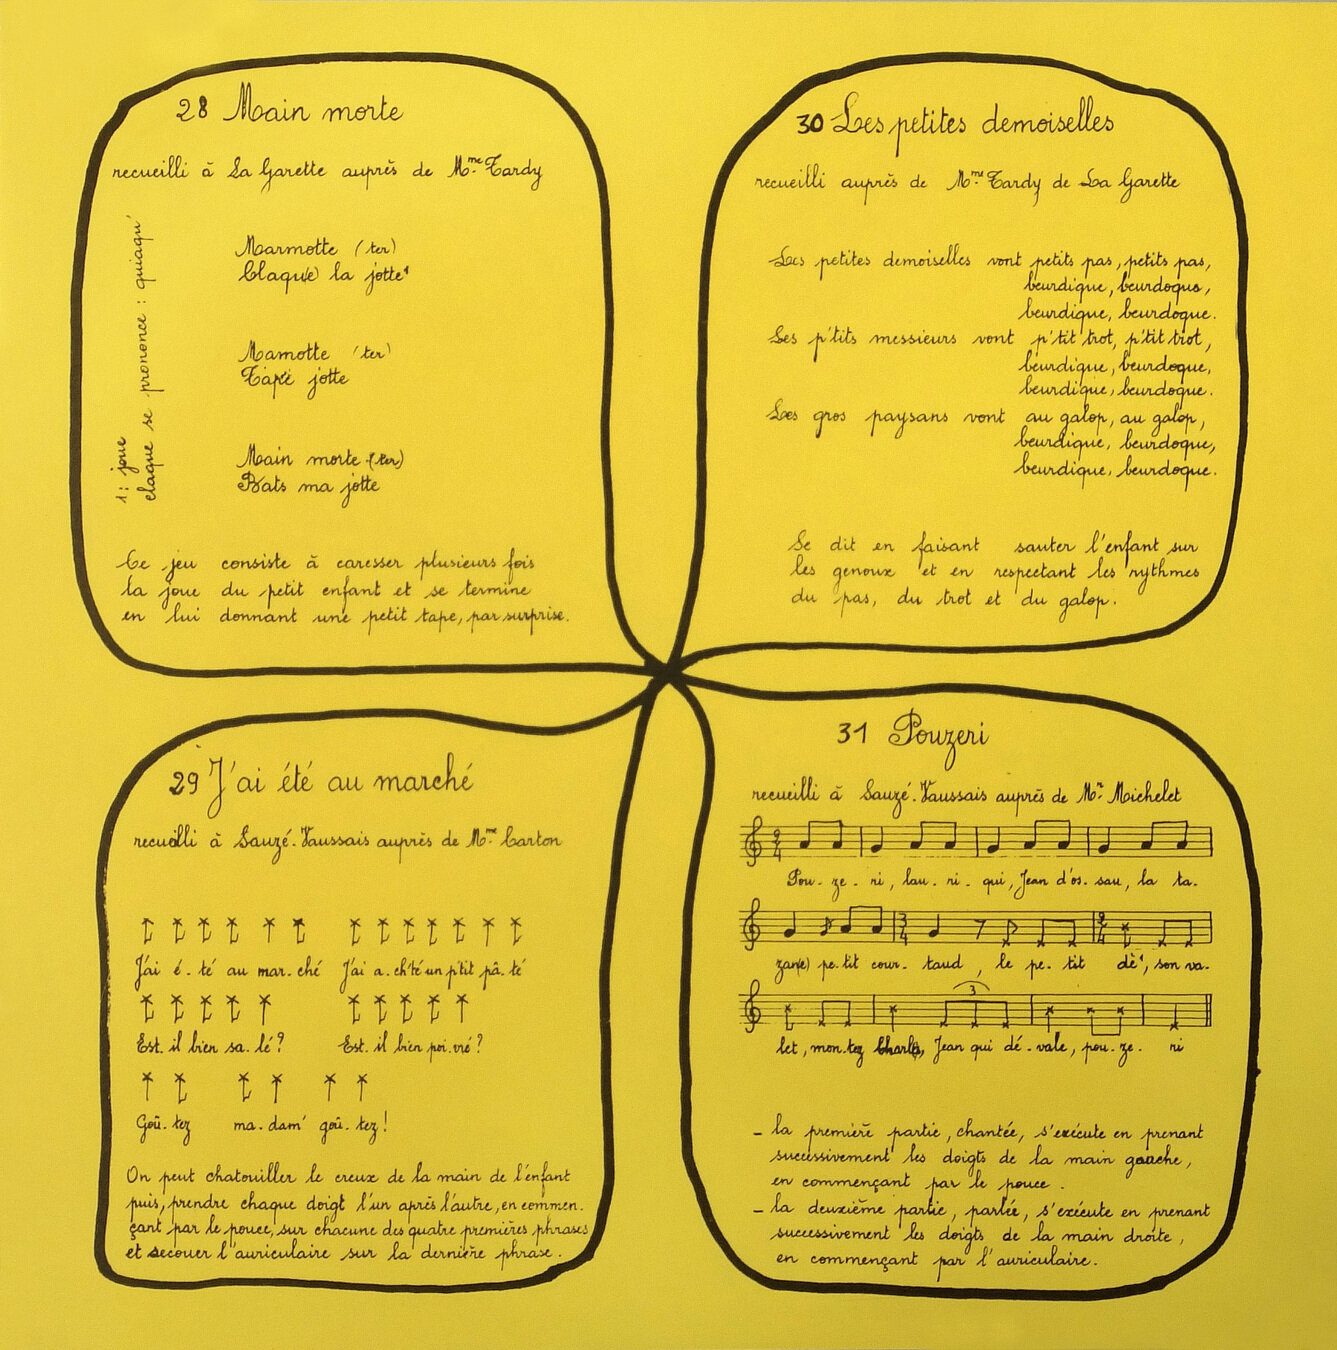 28 Main morte
recueilli à La Garette auprès de Mme Tardy
Marmotte (ter)
Claqu(e) la jotte¹
Mamotte (ter)
Tape jotte
Main morte (ter)
Bats ma jotte
1: joue
claque se prononce : quiaqu'
Ce jeu consiste à caresser plusieurs fois
la joue du petit enfant et se termine
en lui donnant une petit tape, par surprise.
30 Les petites demoiselles
recueilli auprès de Mme Tardy de La Garette
Les petites demoiselles vont petits pas, petits pas,
beurdique, beurdoque,
beurdique, beurdoque.
Les p'tits messieurs vont p'tit trot, p'tit trot,
beurdique, beurdoque,
beurdique, beurdoque.
Les gros paysans vont au galop, au galop,
beurdique, beurdoque,
beurdique, beurdoque.
Se dit en faisant sauter l'enfant sur
les genoux et en respectant les rythmes
du pas, du trot et du galop.
29 J'ai été au marché
recueilli à Sauzé-Vaussais auprès de Mme Carton
J'ai é-té au mar-ché J'ai a-ch'té un p'tit pâ-té
Est-il bien sa-lé? Est-il bien poi-vré?
Goû-tez ma-dam' goû-tez!
On peut chatouiller le creux de la main de l'enfant
puis, prendre chaque doigt l'un après l'autre, en commen-
çant par le pouce, sur chacune des quatre premières phrases
et secouer l'auriculaire sur la dernière phrase.
31 Pouzeri
recueilli à Sauzé-Vaussais auprès de Mr Michelet
2/4
Pou-ze-ri, lau-ri-qui, Jean d'os-sau, la ta-
3/4 2/4
zan(e) pe-tit cour-taud, le pe-tit dè¹, son va-
3
let, mon-tez Charl(e), Jean qui dé-vale, pou-ze-ri
- la première partie, chantée, s'exécute en prenant
successivement les doigts de la main gauche,
en commençant par le pouce.
- la deuxième partie, parlée, s'exécute en prenant
successivement les doigts de la main droite,
en commençant par l'auriculaire.